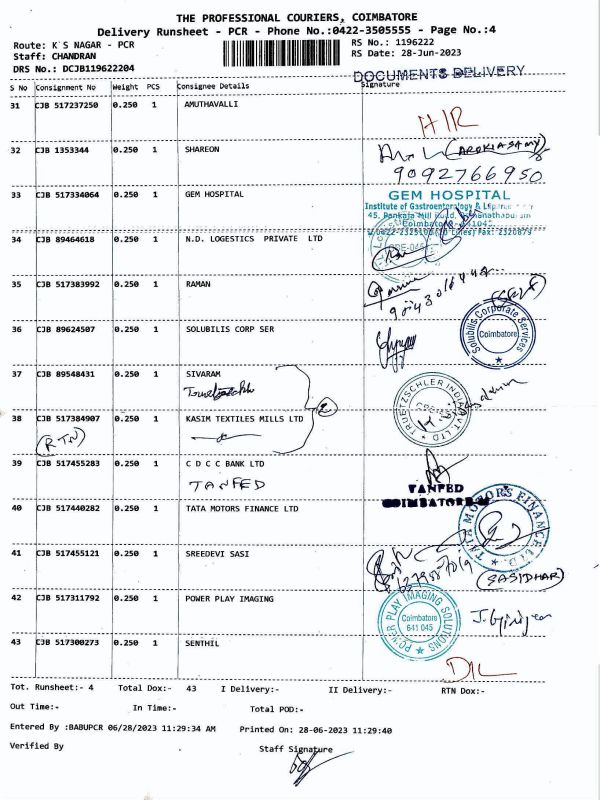 THE PROFESSIONAL COURIERS, COIMBATORE
Delivery Runsheet - PCR - Phone No.:0422-3505555 - Page No.:4
Route: K S NAGAR - PCR
RS No.: 1196222
Staff: CHANDRAN
RS Date: 28-Jun-2023
DRS No.: DCJB119622204
DOCUMENTS DELIVERY
S No Consignment No Weight PCS Consignee Details Signature
31 CJB 517237250 0.250 1 AMUTHAVALLI
HIR
32 CJB 1353344 0.250 1 SHAREON
(AROKIASAMY)
9092766950
33 CJB 517334064 0.250 1 GEM HOSPITAL
GEM HOSPITAL
Institute of Gastroenterology &
45, Pankaja Mill Road, Ramanathapuram
Coimbatore - 641045
Fax: 2320879
34 CJB 89464618 0.250 1 N.D. LOGESTICS PRIVATE LTD
35 CJB 517383992 0.250 1 RAMAN
36 CJB 89624507 0.250 1 SOLUBILIS CORP SER
Solubilis Corporate Services
Coimbatore
37 CJB 89548431 0.250 1 SIVARAM
Truetzschler
TRUETZSCHLER INDIA PVT. LTD
38 CJB 517384907 0.250 1 KASIM TEXTILES MILLS LTD
(RTN)
2
39 CJB 517455283 0.250 1 C D C C BANK LTD
TANFED
TANFED
COIMBATORE
40 CJB 517440282 0.250 1 TATA MOTORS FINANCE LTD
TATA MOTORS FINANCE LTD.
41 CJB 517455121 0.250 1 SREEDEVI SASI
(SASIDHAR)
42 CJB 517311792 0.250 1 POWER PLAY IMAGING
POWER PLAY IMAGING SOLUTIONS
Coimbatore
641 045
43 CJB 517300273 0.250 1 SENTHIL
DIL
Tot. Runsheet:- 4 Total Dox:- 43 I Delivery:- II Delivery:- RTN Dox:-
Out Time:- In Time:- Total POD:-
Entered By :BABUPCR 06/28/2023 11:29:34 AM Printed On: 28-06-2023 11:29:40
Verified By Staff Signature